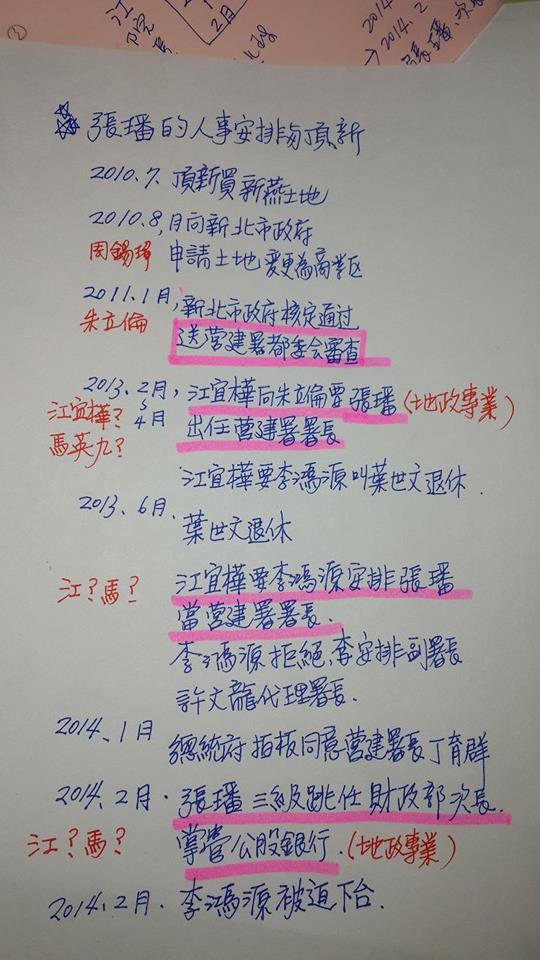 2月
2014.2
☆ 張璠的人事安排與頂新
2010.7. 頂新買新燕土地
2010.8,月向新北市政府
周錫瑋 申請土地變更為商業区
2011.1月,新北市政府核定通过
朱立倫 送營建署都委会審查
2013.2月, 江宜樺向朱立倫要張璠(地政專業)
江宜樺? 4月 出任營建署署長
馬英九?
江宜樺要李鴻源叫葉世文退休.
2013.6月.
葉世文退休
江?馬? 江宜樺要李鴻源安排張璠
當營建署署長.
李鴻源拒絕,李安排副署長
許文龍代理署長.
2014.1月 總統府拍板同意營建署長丁育群
2014.2月. 張璠三級跳任財政部次長.
江?馬? 掌管公股銀行.(地政專業)
2014.2月. 李鴻源被迫下台.